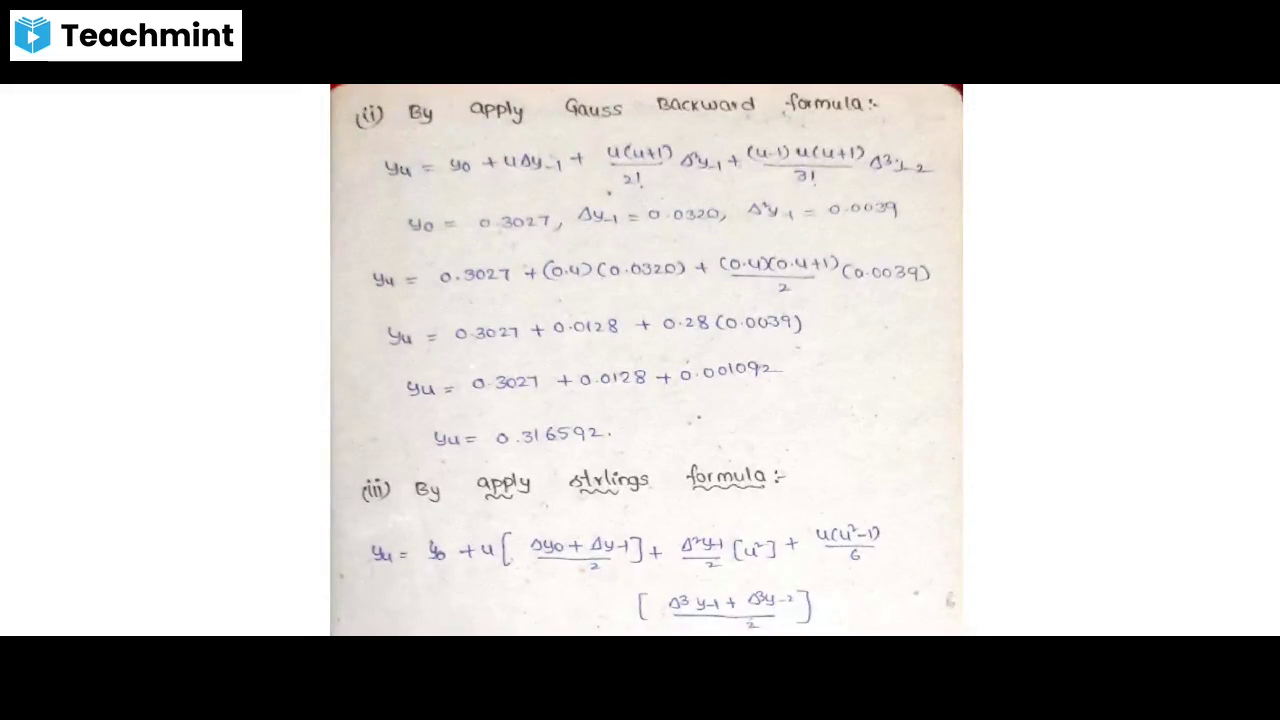 Teachmint
(ii) By apply Gauss Backward formula:-
yu = y0 + uΔy-1 + u(u+1)/2! Δ²y-1 + (u-1)u(u+1)/3! Δ³y-2
y0 = 0.3027, Δy-1 = 0.0320, Δ²y-1 = 0.0039
yu = 0.3027 + (0.4)(0.0320) + (0.4)(0.4+1)/2 (0.0039)
yu = 0.3027 + 0.0128 + 0.28(0.0039)
yu = 0.3027 + 0.0128 + 0.001092
yu = 0.316592.
(iii) By apply strlings formula:-
yu = y0 + u[Δy0 + Δy-1/2] + Δ²y-1/2 [u²] + u(u²-1)/6
[Δ³y-1 + Δ³y-2/2]